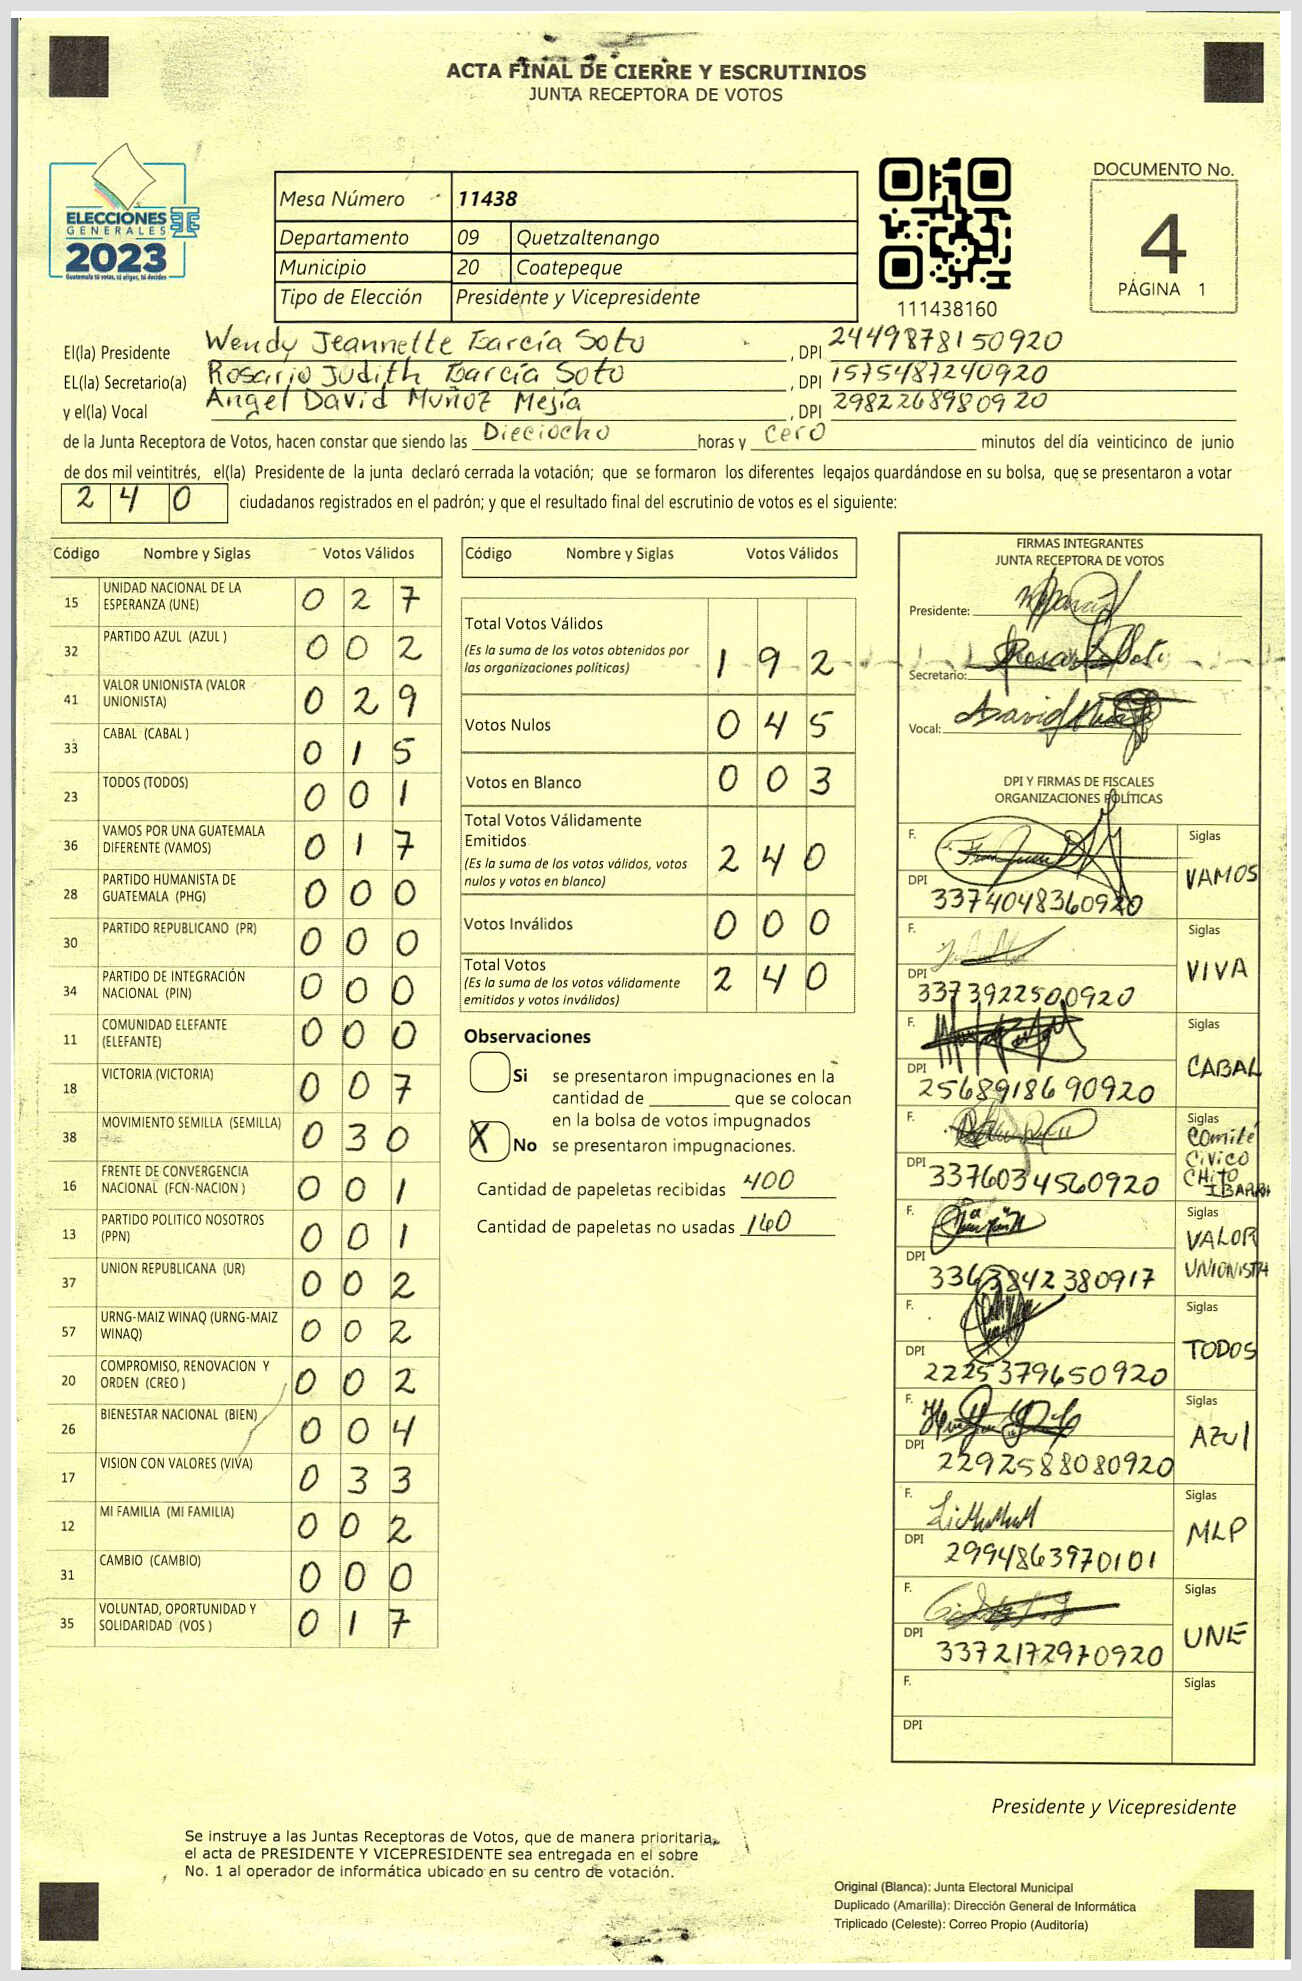 ACTA FINAL DE CIERRE Y ESCRUTINIOS
JUNTA RECEPTORA DE VOTOS
ELECCIONES
GENERALES
2023
Guatemala tú votas, tú eliges, tú decides
Mesa Número 11438
Departamento 09 Quetzaltenango
Municipio 20 Coatepeque
Tipo de Elección Presidente y Vicepresidente
111438160
DOCUMENTO No.
4
PÁGINA 1
El(la) Presidente Wendy Jeannette García Soto, DPI 2449878150920
EL(la) Secretario(a) Rosario Judith García Soto, DPI 1575487240920
y el(la) Vocal Angel David Muñoz Mejía, DPI 2982268980920
de la Junta Receptora de Votos, hacen constar que siendo las Dieciocho horas y cero minutos del día veinticinco de junio
de dos mil veintitrés, el(la) Presidente de la junta declaró cerrada la votación; que se formaron los diferentes legajos guardándose en su bolsa, que se presentaron a votar
240 ciudadanos registrados en el padrón; y que el resultado final del escrutinio de votos es el siguiente:
Código Nombre y Siglas Votos Válidos
15 UNIDAD NACIONAL DE LA ESPERANZA (UNE) 027
32 PARTIDO AZUL (AZUL ) 002
41 VALOR UNIONISTA (VALOR UNIONISTA) 029
33 CABAL (CABAL ) 015
23 TODOS (TODOS) 001
36 VAMOS POR UNA GUATEMALA DIFERENTE (VAMOS) 017
28 PARTIDO HUMANISTA DE GUATEMALA (PHG) 000
30 PARTIDO REPUBLICANO (PR) 000
34 PARTIDO DE INTEGRACIÓN NACIONAL (PIN) 000
11 COMUNIDAD ELEFANTE (ELEFANTE) 000
18 VICTORIA (VICTORIA) 007
38 MOVIMIENTO SEMILLA (SEMILLA) 030
16 FRENTE DE CONVERGENCIA NACIONAL (FCN-NACION ) 001
13 PARTIDO POLITICO NOSOTROS (PPN) 001
37 UNION REPUBLICANA (UR) 002
57 URNG-MAIZ WINAQ (URNG-MAIZ WINAQ) 002
20 COMPROMISO, RENOVACION Y ORDEN (CREO ) 002
26 BIENESTAR NACIONAL (BIEN) 004
17 VISION CON VALORES (VIVA) 033
12 MI FAMILIA (MI FAMILIA) 002
31 CAMBIO (CAMBIO) 000
35 VOLUNTAD, OPORTUNIDAD Y SOLIDARIDAD (VOS ) 017
Código Nombre y Siglas Votos Válidos
Total Votos Válidos
(Es la suma de los votos obtenidos por
las organizaciones políticas) 192
Votos Nulos 045
Votos en Blanco 003
Total Votos Válidamente
Emitidos
(Es la suma de los votos válidos, votos
nulos y votos en blanco) 240
Votos Inválidos 000
Total Votos
(Es la suma de los votos válidamente
emitidos y votos inválidos) 240
Observaciones
Si se presentaron impugnaciones en la
cantidad de ________ que se colocan
en la bolsa de votos impugnados
X No se presentaron impugnaciones.
Cantidad de papeletas recibidas 400
Cantidad de papeletas no usadas 160
FIRMAS INTEGRANTES
JUNTA RECEPTORA DE VOTOS
Presidente:
Secretario:
Vocal:
DPI Y FIRMAS DE FISCALES
ORGANIZACIONES POLÍTICAS
F. Siglas
DPI 3374048360920 VAMOS
F. Siglas
DPI 3373922500920 VIVA
F. Siglas
DPI 2568918690920 CABAL
F. Siglas
DPI 3376034560920 Comité Civico CHITO IBARRA
F. Siglas
DPI 3363842380917 VALOR UNIONISTA
F. Siglas
DPI 2225379650920 TODOS
F. Siglas
DPI 2292588080920 AZUl
F. Siglas
DPI 2994863970101 MLP
F. Siglas
DPI 3372172970920 UNE
F. Siglas
DPI
Presidente y Vicepresidente
Se instruye a las Juntas Receptoras de Votos, que de manera prioritaria,
el acta de PRESIDENTE Y VICEPRESIDENTE sea entregada en el sobre
No. 1 al operador de informática ubicado en su centro de votación.
Original (Blanca): Junta Electoral Municipal
Duplicado (Amarilla): Dirección General de Informática
Triplicado (Celeste): Correo Propio (Auditoría)